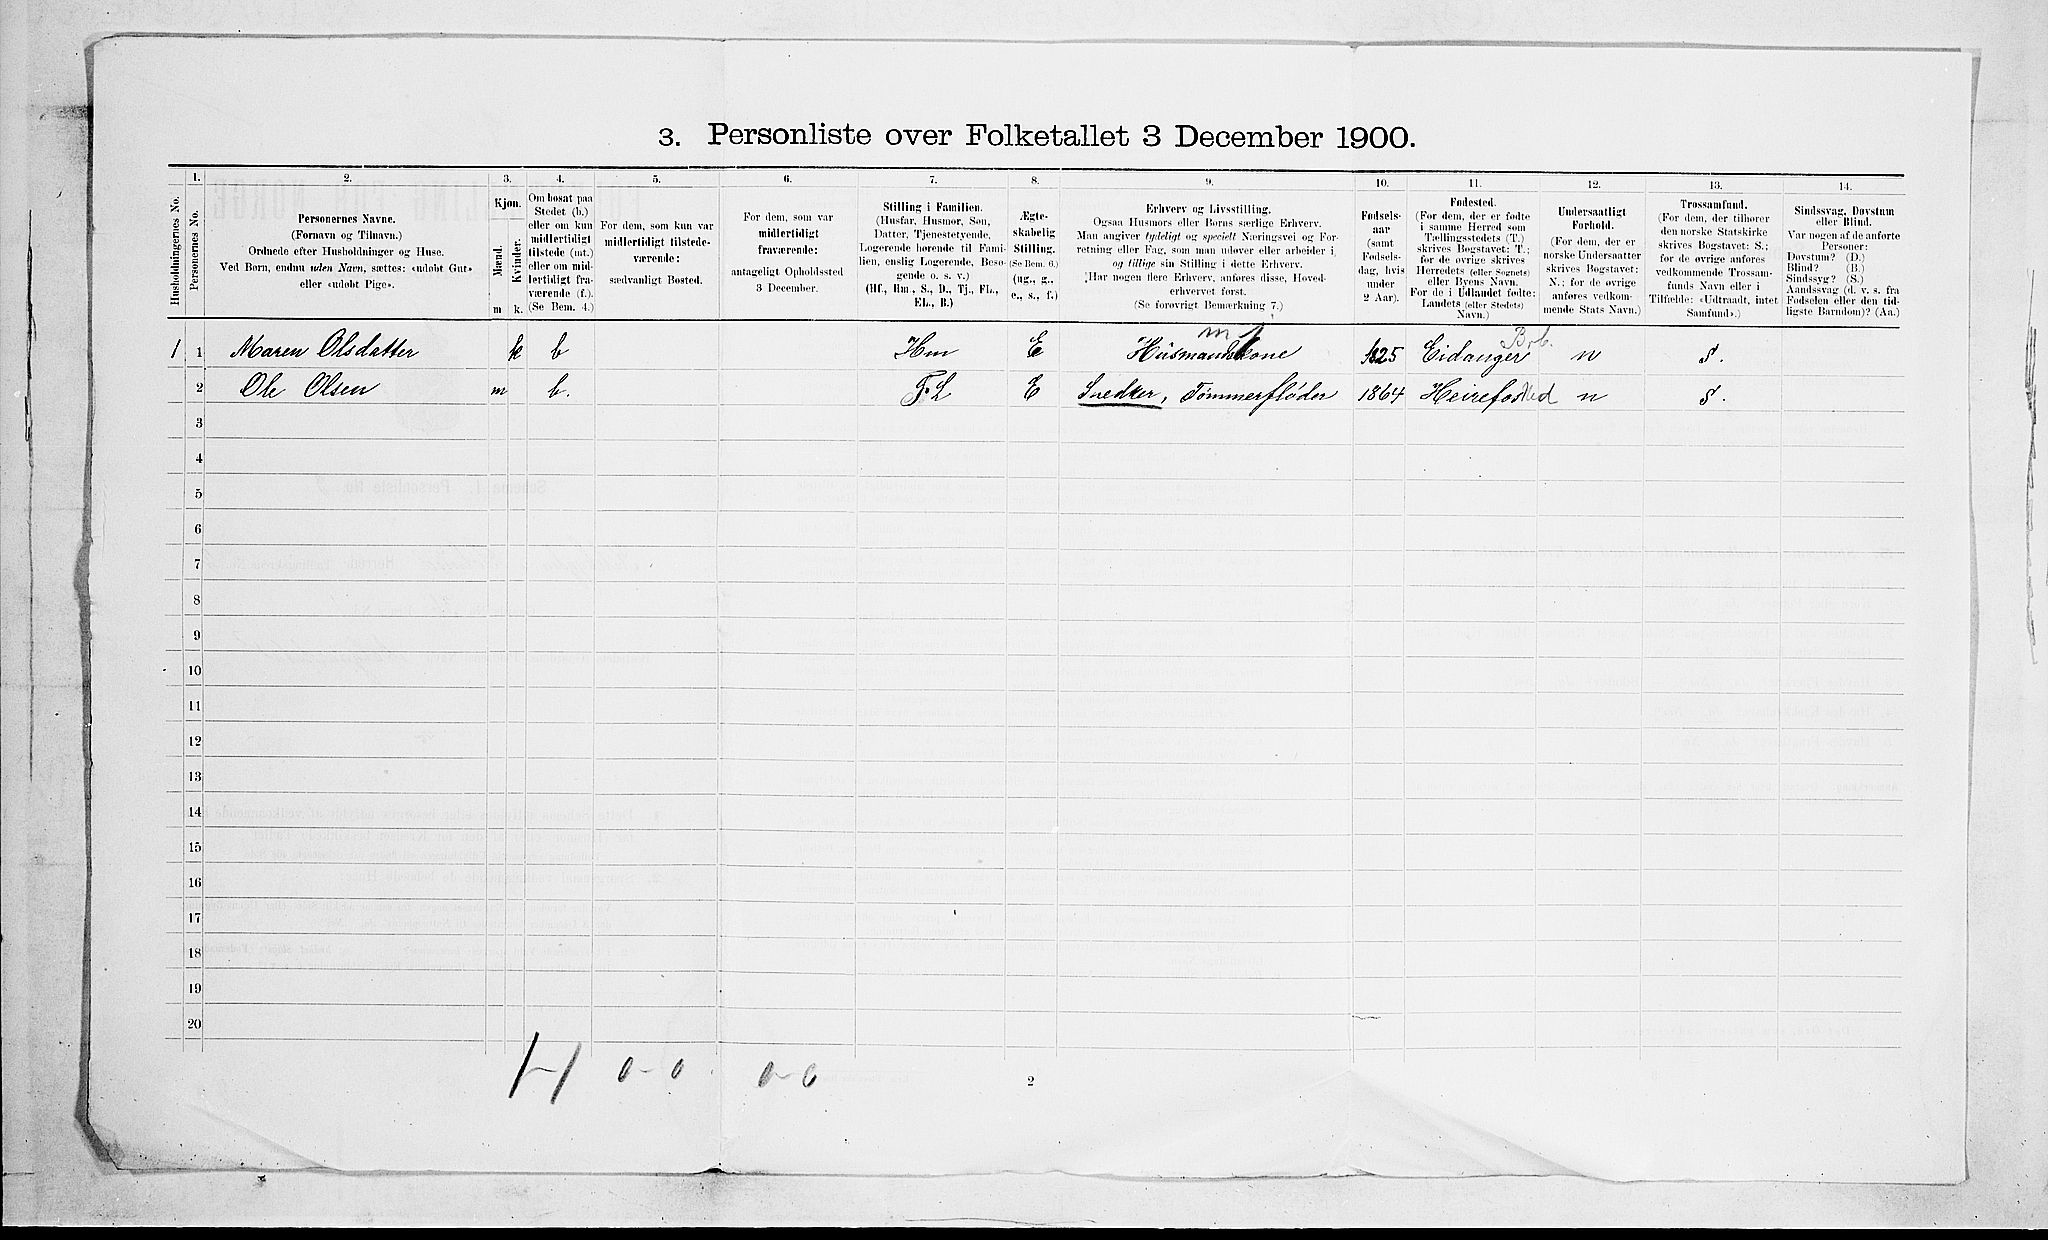 3. Personliste over Folketallet 3 December 1900.
1. 2. 3. 4. 5. 6. 7. 8. 9. 10. 11. 12. 13. 14.
Husholdningernes No.
Personernes No.
Personernes Navne.
(Fornavn og Tilnavn.)
Ordnede efter Husholdninger og Huse.
Ved Børn, endnu uden Navn, sættes: «udøbt Gut»
eller «udøbt Pige».
Kjøn.
Mænd.
Kvinder.
m k.
Om bosat paa
Stedet (b.)
eller om kun
midlertidigt
tilstede (mt.)
eller om mid-
lertidigt fra-
værende (f.).
(Se Bem. 4.)
For dem, som kun var
midlertidigt tilstede-
værende:
sædvanligt Bosted.
For dem, som var
midlertidigt
fraværende:
antageligt Opholdssted
3 December.
Stilling i Familien.
(Husfar, Husmor, Søn,
Datter, Tjenestetyende,
Logerende hørende til Fami-
lien, enslig Logerende, Besø-
gende o. s. v.)
(Hf., Hm., S., D., Tj., FL.,
EL., B.)
Ægte-
skabelig
Stilling.
(Se Bem. 6.)
(ug., g.,
e., s., f.)
Erhverv og Livsstilling.
Ogsaa Husmors eller Børns særlige Erhverv.
Man angiver tydeligt og specielt Næringsvei og For-
retning eller Fag, som man udøver eller arbeider i,
og tillige sin Stilling i dette Erhverv.
(Har nogen flere Erhverv, anføres disse, Hoved-
erhvervet først.
(Se forøvrigt Bemærkning 7.)
Fødsels-
aar
(samt
Fødsels-
dag, hvis
under
2 Aar).
Fødested.
(For dem, der er fødte
i samme Herred som
Tællingsstedets (T.)
skrives Bogstavet: T.;
for de øvrige skrives
Herredets (eller Sognets)
eller Byens Navn.
For de i Udlandet fødte:
Landets (eller Stedets)
Navn.)
Undersaatligt
Forhold.
(For dem, der er
norske Undersaatter
skrives Bogstavet:
N.; for de øvrige
anføres vedkom-
mende Stats Navn.)
Trossamfund.
(For dem, der tilhører
den norske Statskirke
skrives Bogstavet: S.;
for de øvrige anføres
vedkommende Trossam-
funds Navn eller i
Tilfælde: «Udtraadt, intet
Samfund».)
Sindssvag, Døvstum
eller Blind.
Var nogen af de anførte
Personer:
Døvstum? (D.)
Blind? (B.)
Sindssyg? (S.)
Aandssvag (d. v. s. fra
Fødselen eller den tid-
ligste Barndom)? (Aa.)
1 1 Maren Olsdatter k b Hm E Husmandskone 1825 Eidanger n S.
2 Ole Olsen m b. F.L E Snedker, Tømmerfløder 1864 n S.
3
4
5
6
7
8
9
10
11
12
13
14
15
16
17
18
19
20
1-1 0-0 0-0
2